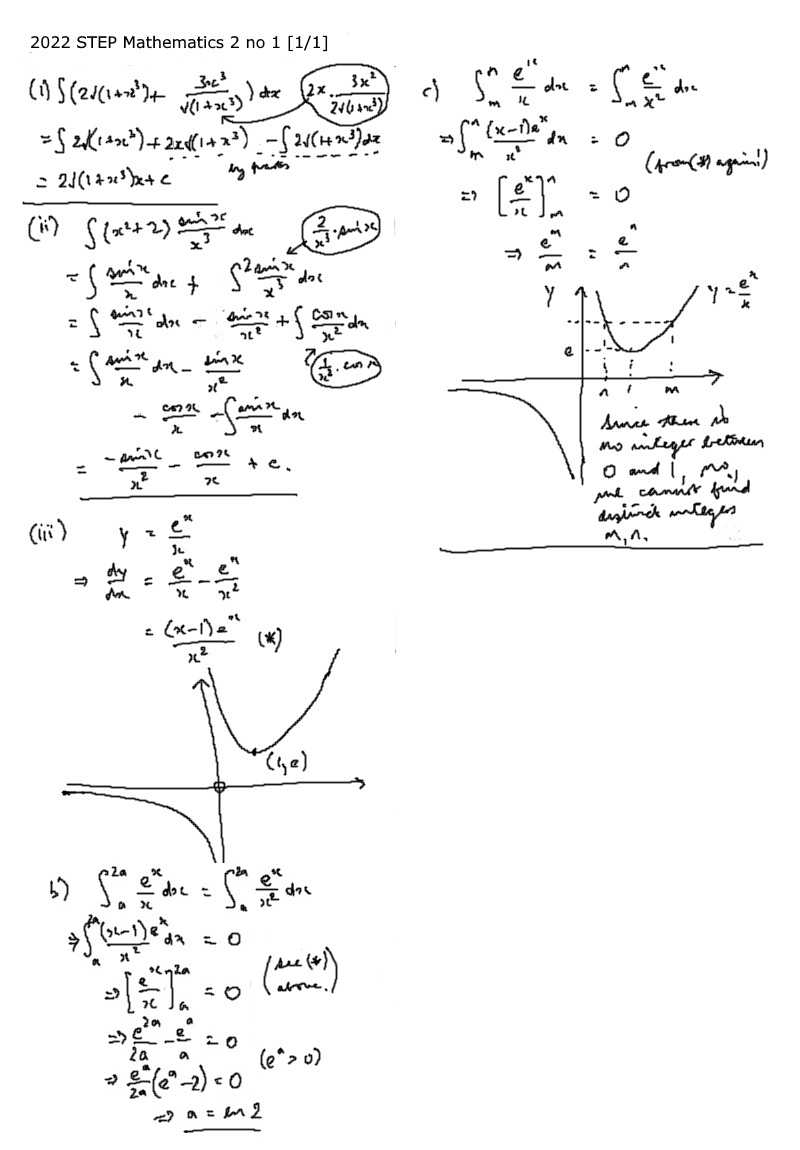 2022 STEP Mathematics 2 no 1 [1/1]
(i) ∫(2√(1+x³) + 3x³/√(1+x³)) dx (2x · 3x²/2√(1+x³))
= ∫2√(1+x³) + 2x√(1+x³) - ∫2√(1+x³)dx
by parts
= 2√(1+x³)x + c
(ii) ∫(x²+2) sin x/x³ dx (2/x³ · sin x)
= ∫ sin x/x dx + ∫ 2 sin x/x³ dx
= ∫ sin x/x dx - sin x/x² + ∫ cos x/x² dx
= ∫ sin x/x dx - sin x/x² (1/x² · cos x)
- cos x/x - ∫ sin x/x dx
= -sin x/x² - cos x/x + c.
(iii) y = eˣ/x
⇒ dy/dx = eˣ/x - eˣ/x²
= (x-1)eˣ/x² (*)
(1,e)
b) ∫ₐ²ᵃ eˣ/x dx = ∫ₐ²ᵃ eˣ/x² dx
⇒ ∫ₐ²ᵃ (x-1)eˣ/x² dx = 0
⇒ [eˣ/x]ₐ²ᵃ = 0 (see (*) above.)
⇒ e²ᵃ/2a - eᵃ/a = 0
(eᵃ > 0)
⇒ eᵃ/2a (eᵃ - 2) = 0
⇒ a = ln 2
c) ∫ₘⁿ eˣ/x dx = ∫ₘⁿ eˣ/x² dx
⇒ ∫ₘⁿ (x-1)eˣ/x² dx = 0
(from (*) again!)
⇒ [eˣ/x]ₘⁿ = 0
⇒ eᵐ/m = eⁿ/n
y y = eˣ/x
e
n 1 m
Since there is
no integer between
0 and 1, no,
we cannot find
distinct integers
m, n.